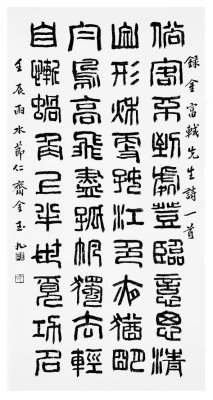 錄金富軾先生詩一首
俗客不到處登臨意思清
山形秋更好江色夜猶明
白鳥高飛盡孤帆獨去輕
自慚蝸角上半世覓功名
壬辰雨水節仁齋金玉